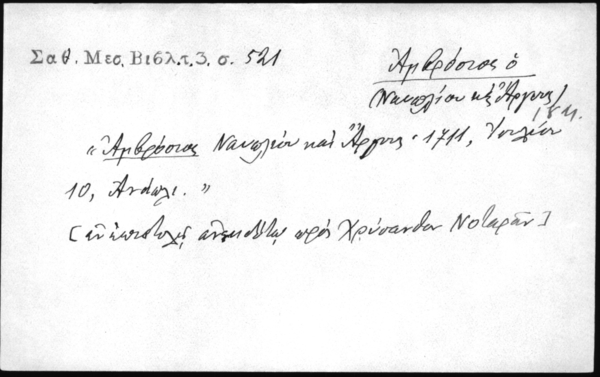 Σαθ. Μεσ. Βιβλ. τ. 3. σ. 521
Ἀμβρόσιος ὁ
Ναυπλίου κ̀ Ἄργους
18 αι.
"Ἀμβρόσιος Ναυπλίου καὶ Ἄργους · 1711, Ἰουλίου
10, Ἀνάπλι."
[ἐν ἐπιστολῇ ἀνεκδότῳ πρὸς Χρύσανθον Νοταρᾶν]